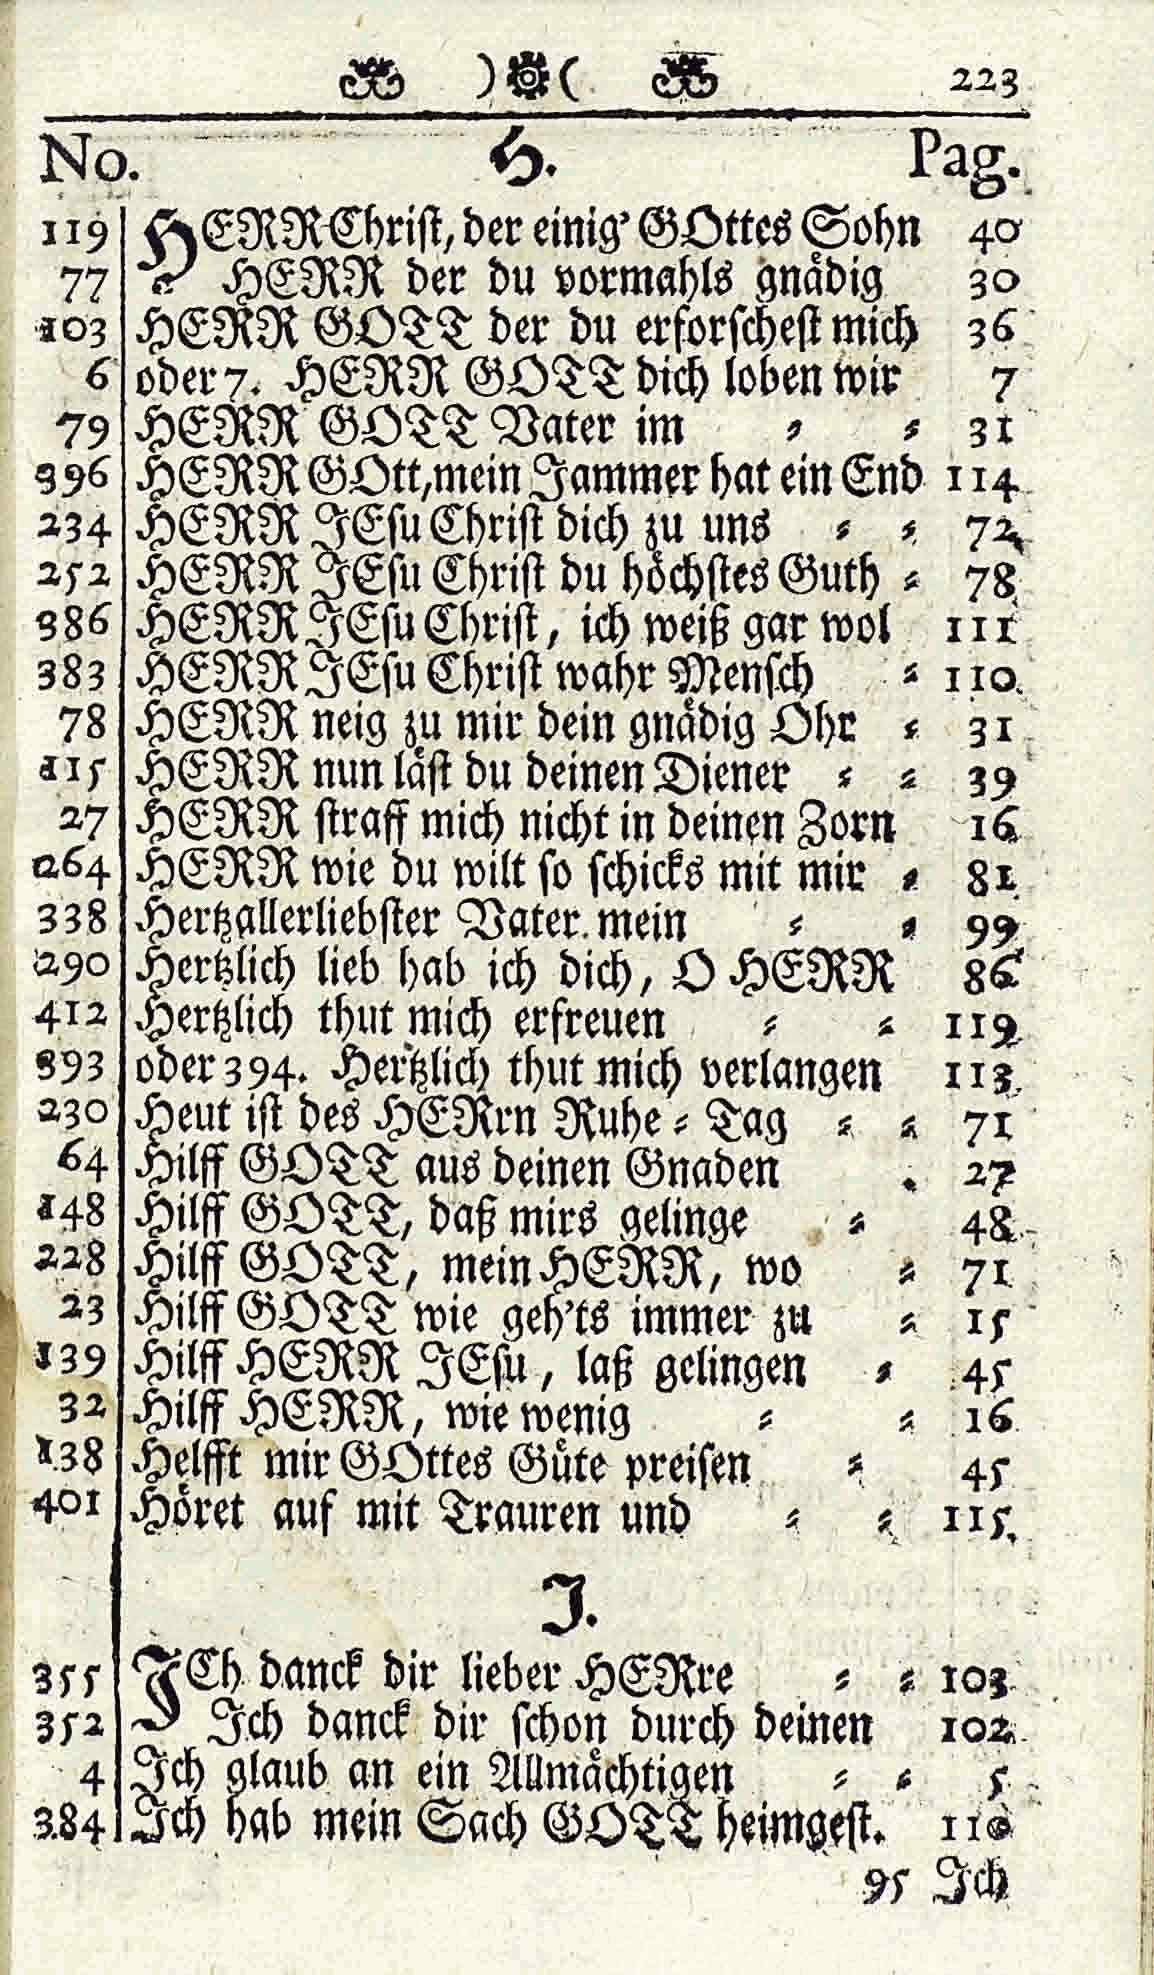 )( 223
No. H. Pag.
119 HERR Christ, der einig' GOttes Sohn 40
77 HERR der du vormahls gnädig 30
103 HERR GOTT der du erforschest mich 36
6 oder 7. HERR GOTT dich loben wir 7
79 HERR GOTT Vater im = = 31
396 HERR GOtt, mein Jammer hat ein End 114
234 HERR JEsu Christ dich zu uns = = 72
252 HERR JEsu Christ du höchstes Guth = 78
386 HERR JEsu Christ, ich weiß gar wol 111
383 HERR JEsu Christ wahr Mensch = 110
78 HERR neig zu mir dein gnädig Ohr = 31
115 HERR nun läst du deinen Diener = = 39
27 HERR straff mich nicht in deinen Zorn 16
264 HERR wie du wilt so schicks mit mir = 81
338 Hertzallerliebster Vater mein = = 99
290 Hertzlich lieb hab ich dich, O HERR 86
412 Hertzlich thut mich erfreuen = = 119
393 oder 394. Hertzlich thut mich verlangen 113
230 Heut ist des HERrn Ruhe = Tag = = 71
64 Hilff GOTT aus deinen Gnaden . 27
148 Hilff GOTT, daß mirs gelinge = 48
228 Hilff GOTT, mein HERR, wo = 71
23 Hilff GOTT wie geh'ts immer zu = 15
139 Hilff HERR JEsu, laß gelingen = 45
32 Hilff HERR, wie wenig = = 16
138 Helfft mir GOttes Güte preisen = 45
401 Höret auf mit Trauren und = = 115.
J.
355 JCh danck dir lieber HERre = = 103
352 Jch danck dir schon durch deinen 102
4 Jch glaub an ein Allmächtigen = = 5
384 Jch hab mein Sach GOTT heimgest. 110
95 Jch